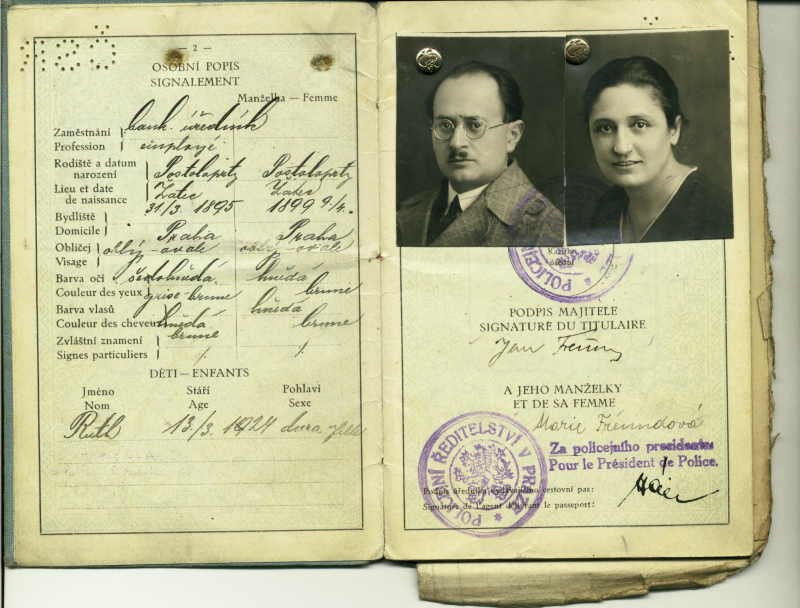 — 2 —
OSOBNÍ POPIS
SIGNALEMENT
Manželka — Femme
Zaměstnání bank. úředník
Profession employé
Rodiště a datum
narození Postoloprty Postoloprty
Lieu et date Žatec Žatec
de naissance 31/3. 1895 1899 9/4.
Bydliště
Domicile Praha Praha
Obličej oblý - ovale oblý - ovale
Visage
Barva očí šedohnědá hnědá
Couleur des yeux grise-brune brune
Barva vlasů hnědá
Couleur des cheveux hnědá brune
Zvláštní znamení brune
Signes particuliers
DĚTI — ENFANTS
Jméno Stáří Pohlaví
Nom Age Sexe
Ruth 13./3. 1924 dcera fille
PODPIS MAJITELE
SIGNATURE DU TITULAIRE
Jan
A JEHO MANŽELKY
ET DE SA FEMME
Marie Freundová
Za policejního presidenta:
Pour le Président de Police.
POLICEJNÍ ŘEDITELSTVÍ V PRAZE
Podpis úředníka vydávajícího cestovní pas:
Signature de l'agent délivrant le passeport: